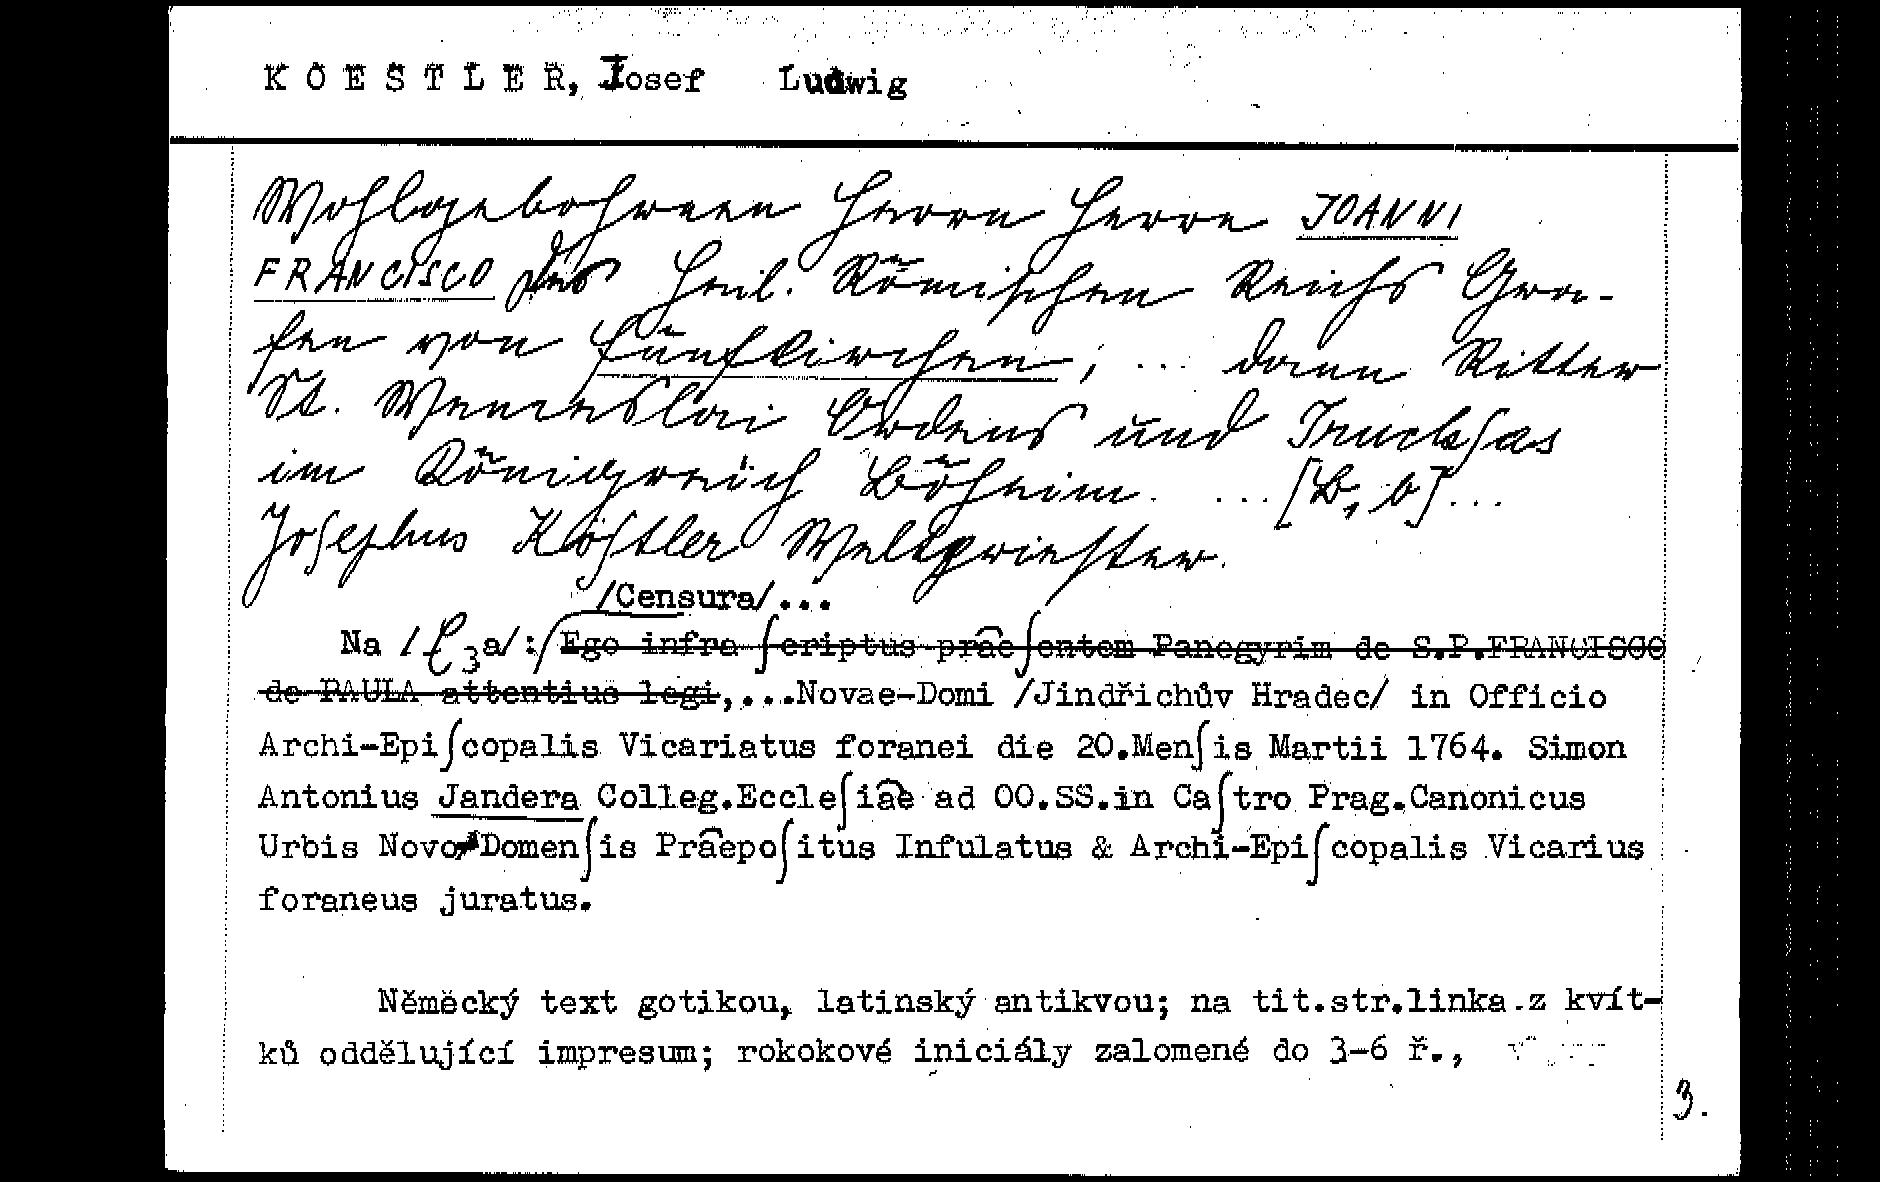 KOESTLER, Josef Ludwig
Wohlgebohrnen Herrn Herrn JOANNI
FRANCISCO des Heil. Römischen Reichs Gra-
fen von Fünfkirchen, ... dann Ritter
St. Wenceslai Ordens und Truckſas
im Königreich Böheim. ... [b]...
Joſephus Köſtler Weltprieſter.
/Censura/...
Na /3a/: Ego infra ſcriptus praeſentem Panegyrim de S.P.FRANCISCO
de PAULA attentius legi,...Novae-Domi /Jindřichův Hradec/ in Officio
Archi-Epiſcopalis Vicariatus foranei die 20.Menſis Martii 1764. Simon
Antonius Jandera Colleg.Eccleſiae ad OO.SS.in Caſtro Prag.Canonicus
Urbis Novo-Domenſis Praepoſitus Infulatus & Archi-Epiſcopalis Vicarius
foraneus juratus.
Německý text gotikou, latinský antikvou; na tit.str.linka z kvít-
ků oddělující impresum; rokokové iniciály zalomené do 3-6 ř.,
3.